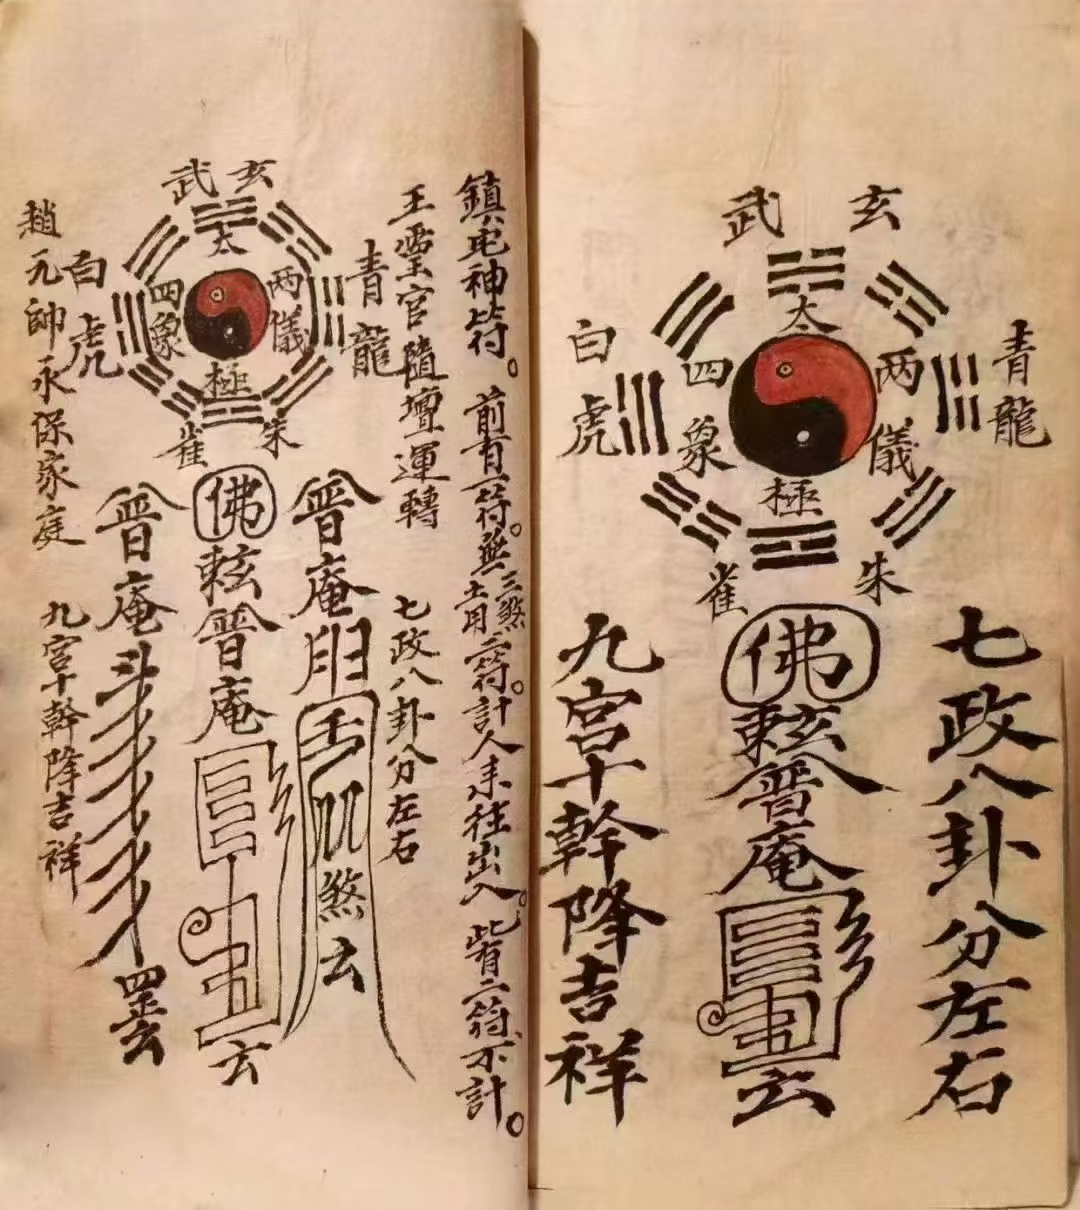 玄武
青龍
白虎
朱雀
太極
两儀
四象
七政八卦分左右
佛
敕普庵
九宮十幹降吉祥
鎮宅神符。前有一符。無三煞
用二符。計人來往出入。此有二符。不計。
王灵官隨壇運轉
玄武
青龍
白虎
朱雀
太極
两儀
四象
趙元帥永保家庭
七政八卦分左右
普庵
煞
佛
敕普庵
普庵
九宮十幹降吉祥